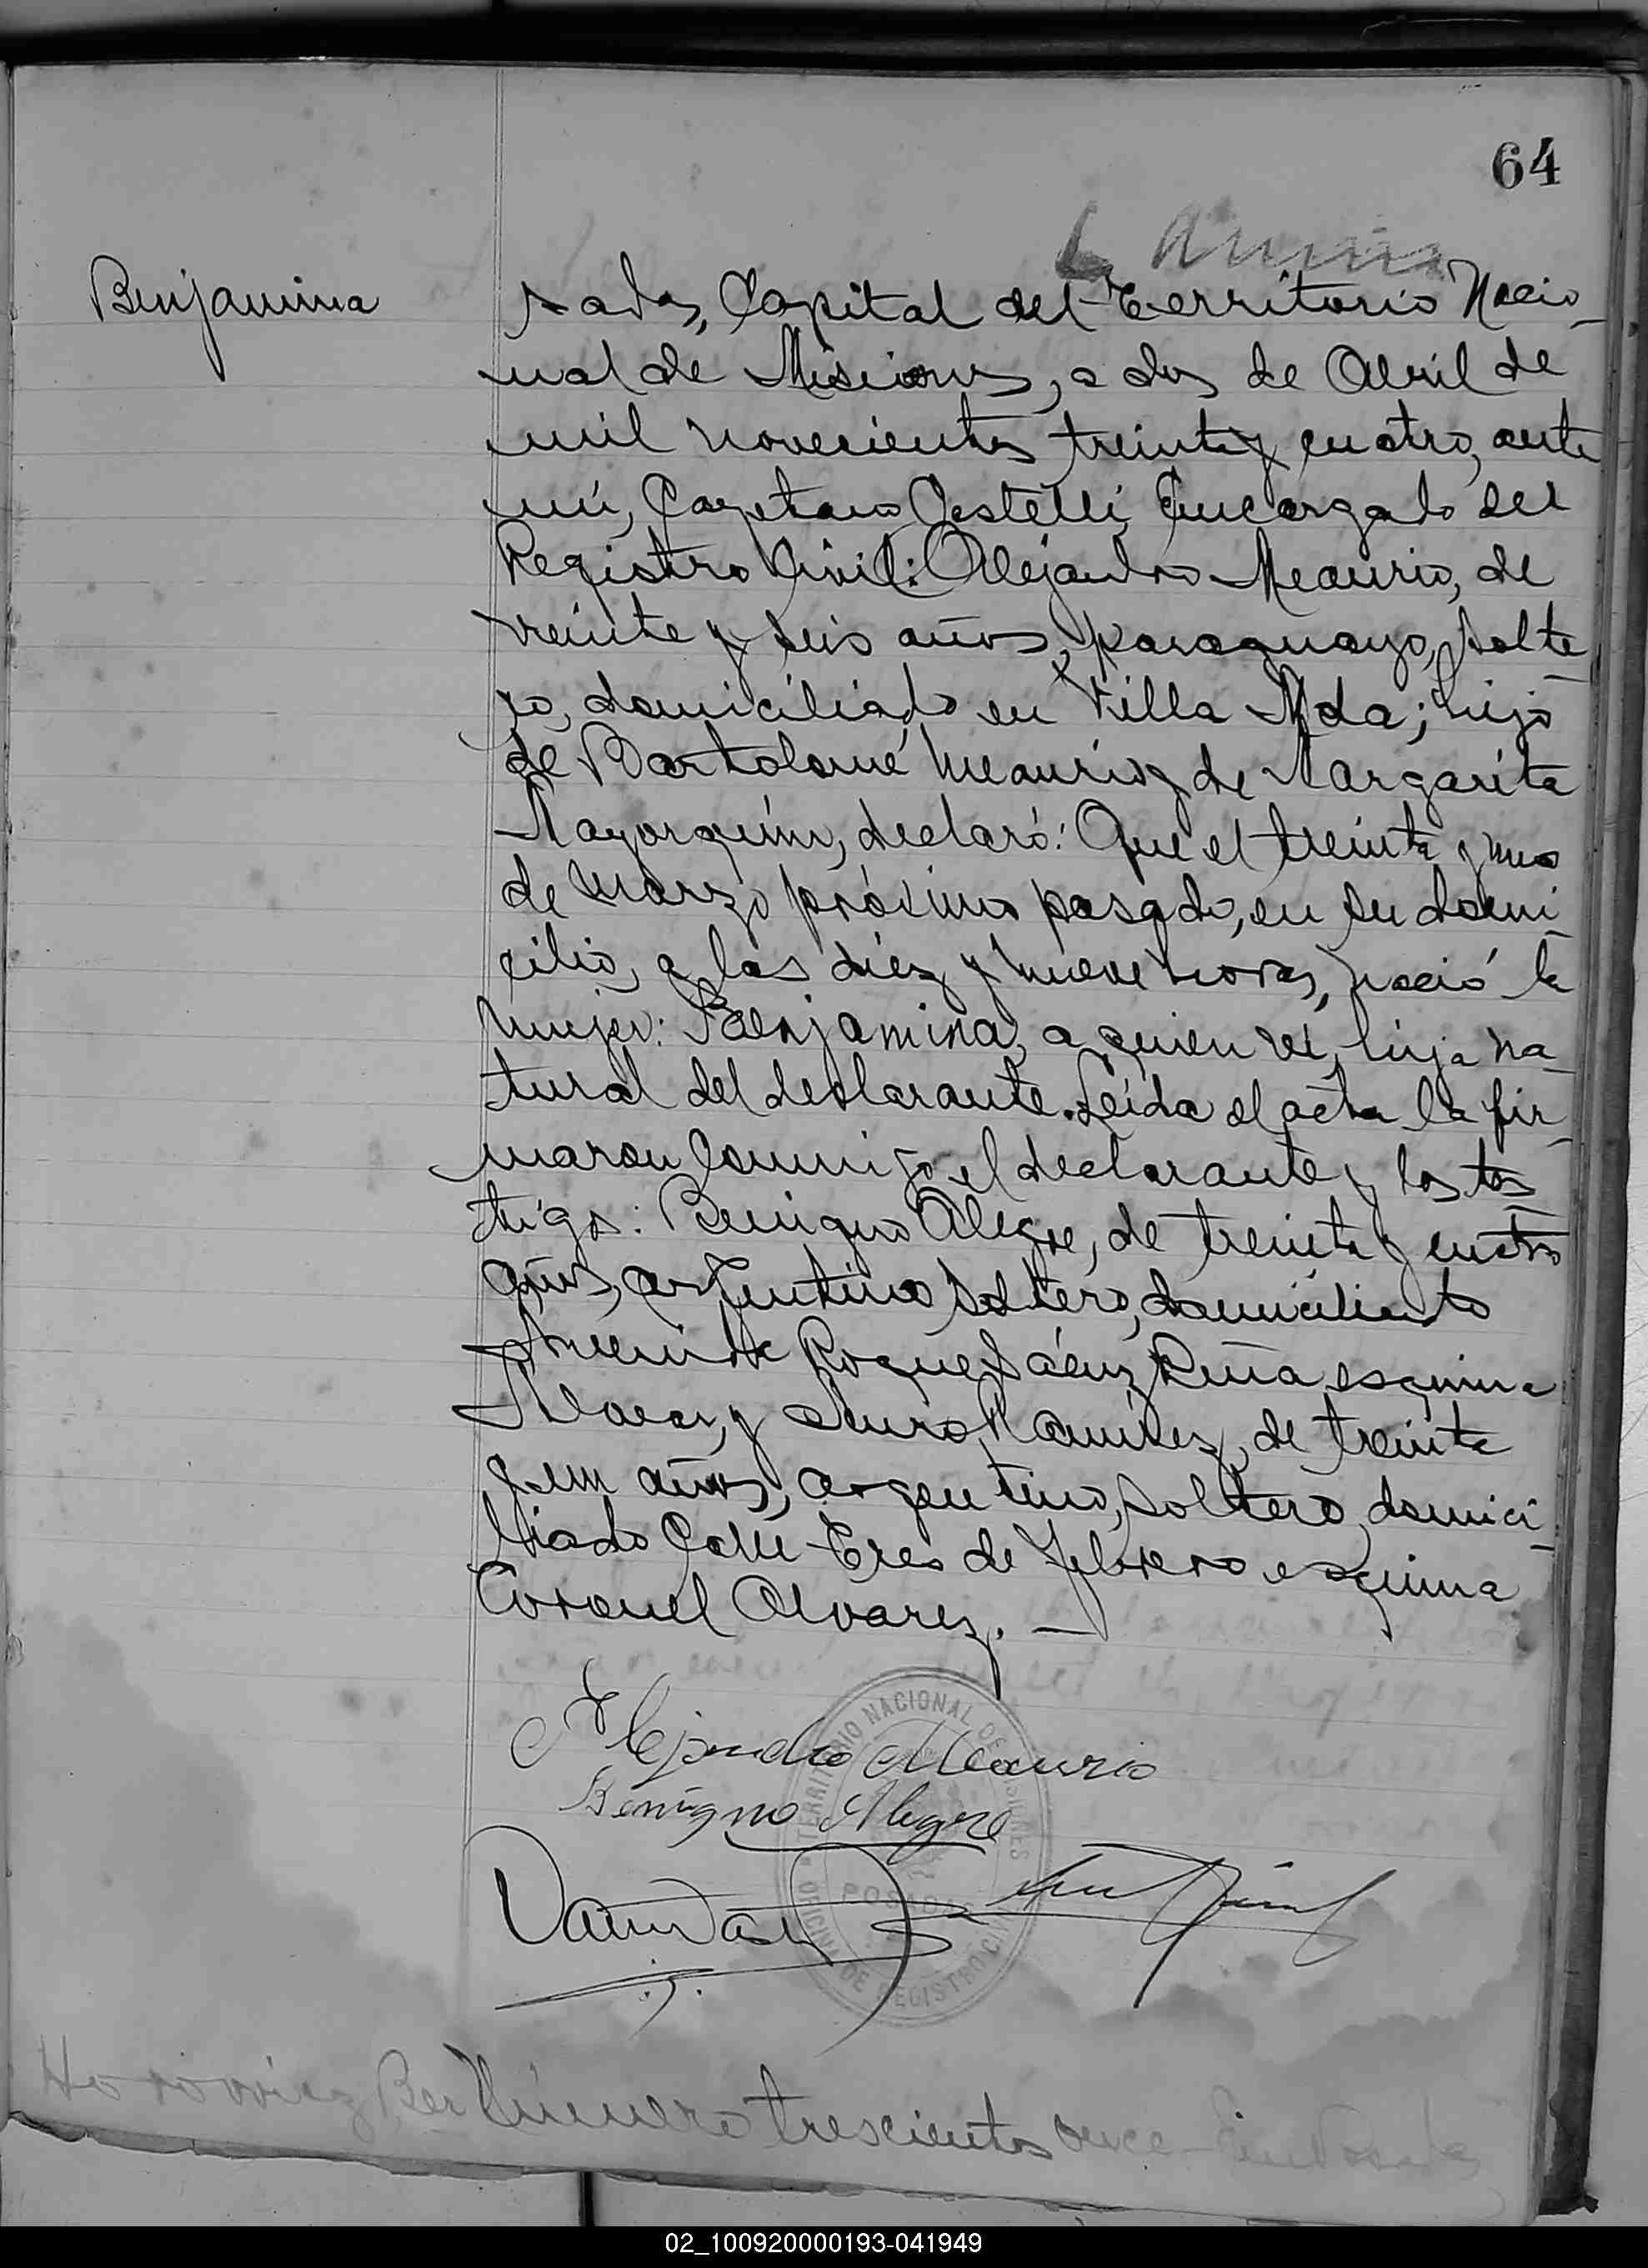 64
Benjamina
sadas, Capital del Territorio Nacio-
nal de Misiones, a dos de Abril de
mil novecientos treinta y cuatro, ante
mí, Cayetano Castelli, Encargado del
Registro Civil: Alejandro Meaurio, de
veinte y seis años, paraguayo, solte-
ro, domiciliado en Villa Mda; hijo
de Bartolomé Meaurio y de Margarita
Mayorquim, declaró: Que el treinta y uno
de Marzo próximo pasado, en su domi-
cilio, a las diez y nueve horas, nació la
mujer: Benjamina, a quien ví, hija na-
tural del declarante. Leída el acta la fir-
maron conmigo el declarante y los tes-
tigos: Benigno Alegre, de treinta y cuatro
años, argentino, soltero, domiciliado
Avenida Roque Sáenz Peña esquina
y Ramírez, de treinta
y un años, argentino, soltero, domici-
liado Calle Tres de Febrero esquina
Coronel Alvarez. —
Alejandro Meaurio
Benigno Alegre
TERRITORIO NACIONAL DE MISIONES
POSADAS
OFICINA DE REGISTRO CIVIL
Número trescientos once - En Posadas
02_100920000193-041949